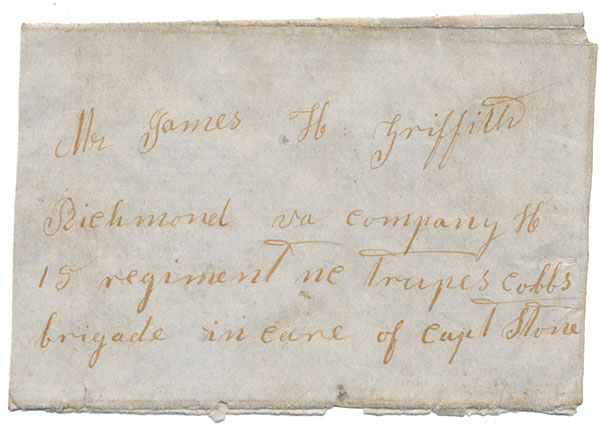 Mr James H Griffith
Richmond va company H
15 regiment nc trupes cobbs
brigade in care of capt Stone